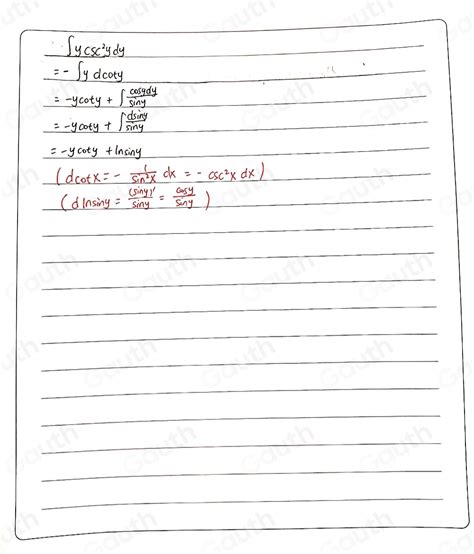 ∫ y csc²y dy
= - ∫ y dcoty
= -ycoty + ∫ cosydy/siny
= -ycoty + ∫ dsiny/siny
= -ycoty + lnsiny
( dcotx = - 1/sin²x dx = - csc²x dx )
( d lnsiny = (siny)'/siny = cosy/siny )